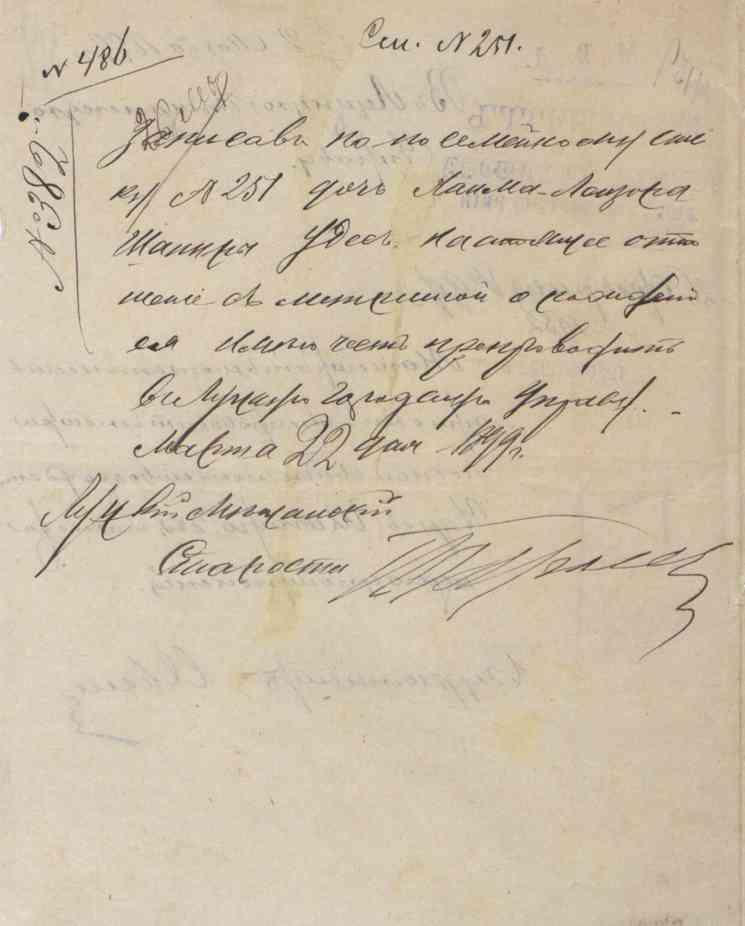 Сем. N 251.
N 486
N 382
22
Записавъ по посемейному спи
ку N 251 дочь Хаима-Лейзора
Шапиры Удесь. Настоящее отно
шеніе съ метрикой о рожденіи
ея имѣю честь препроводить
въ Луцкую Городскую Управу.
Марта 22 дня 1899 г.
Луцкій Мѣщанскій
Староста